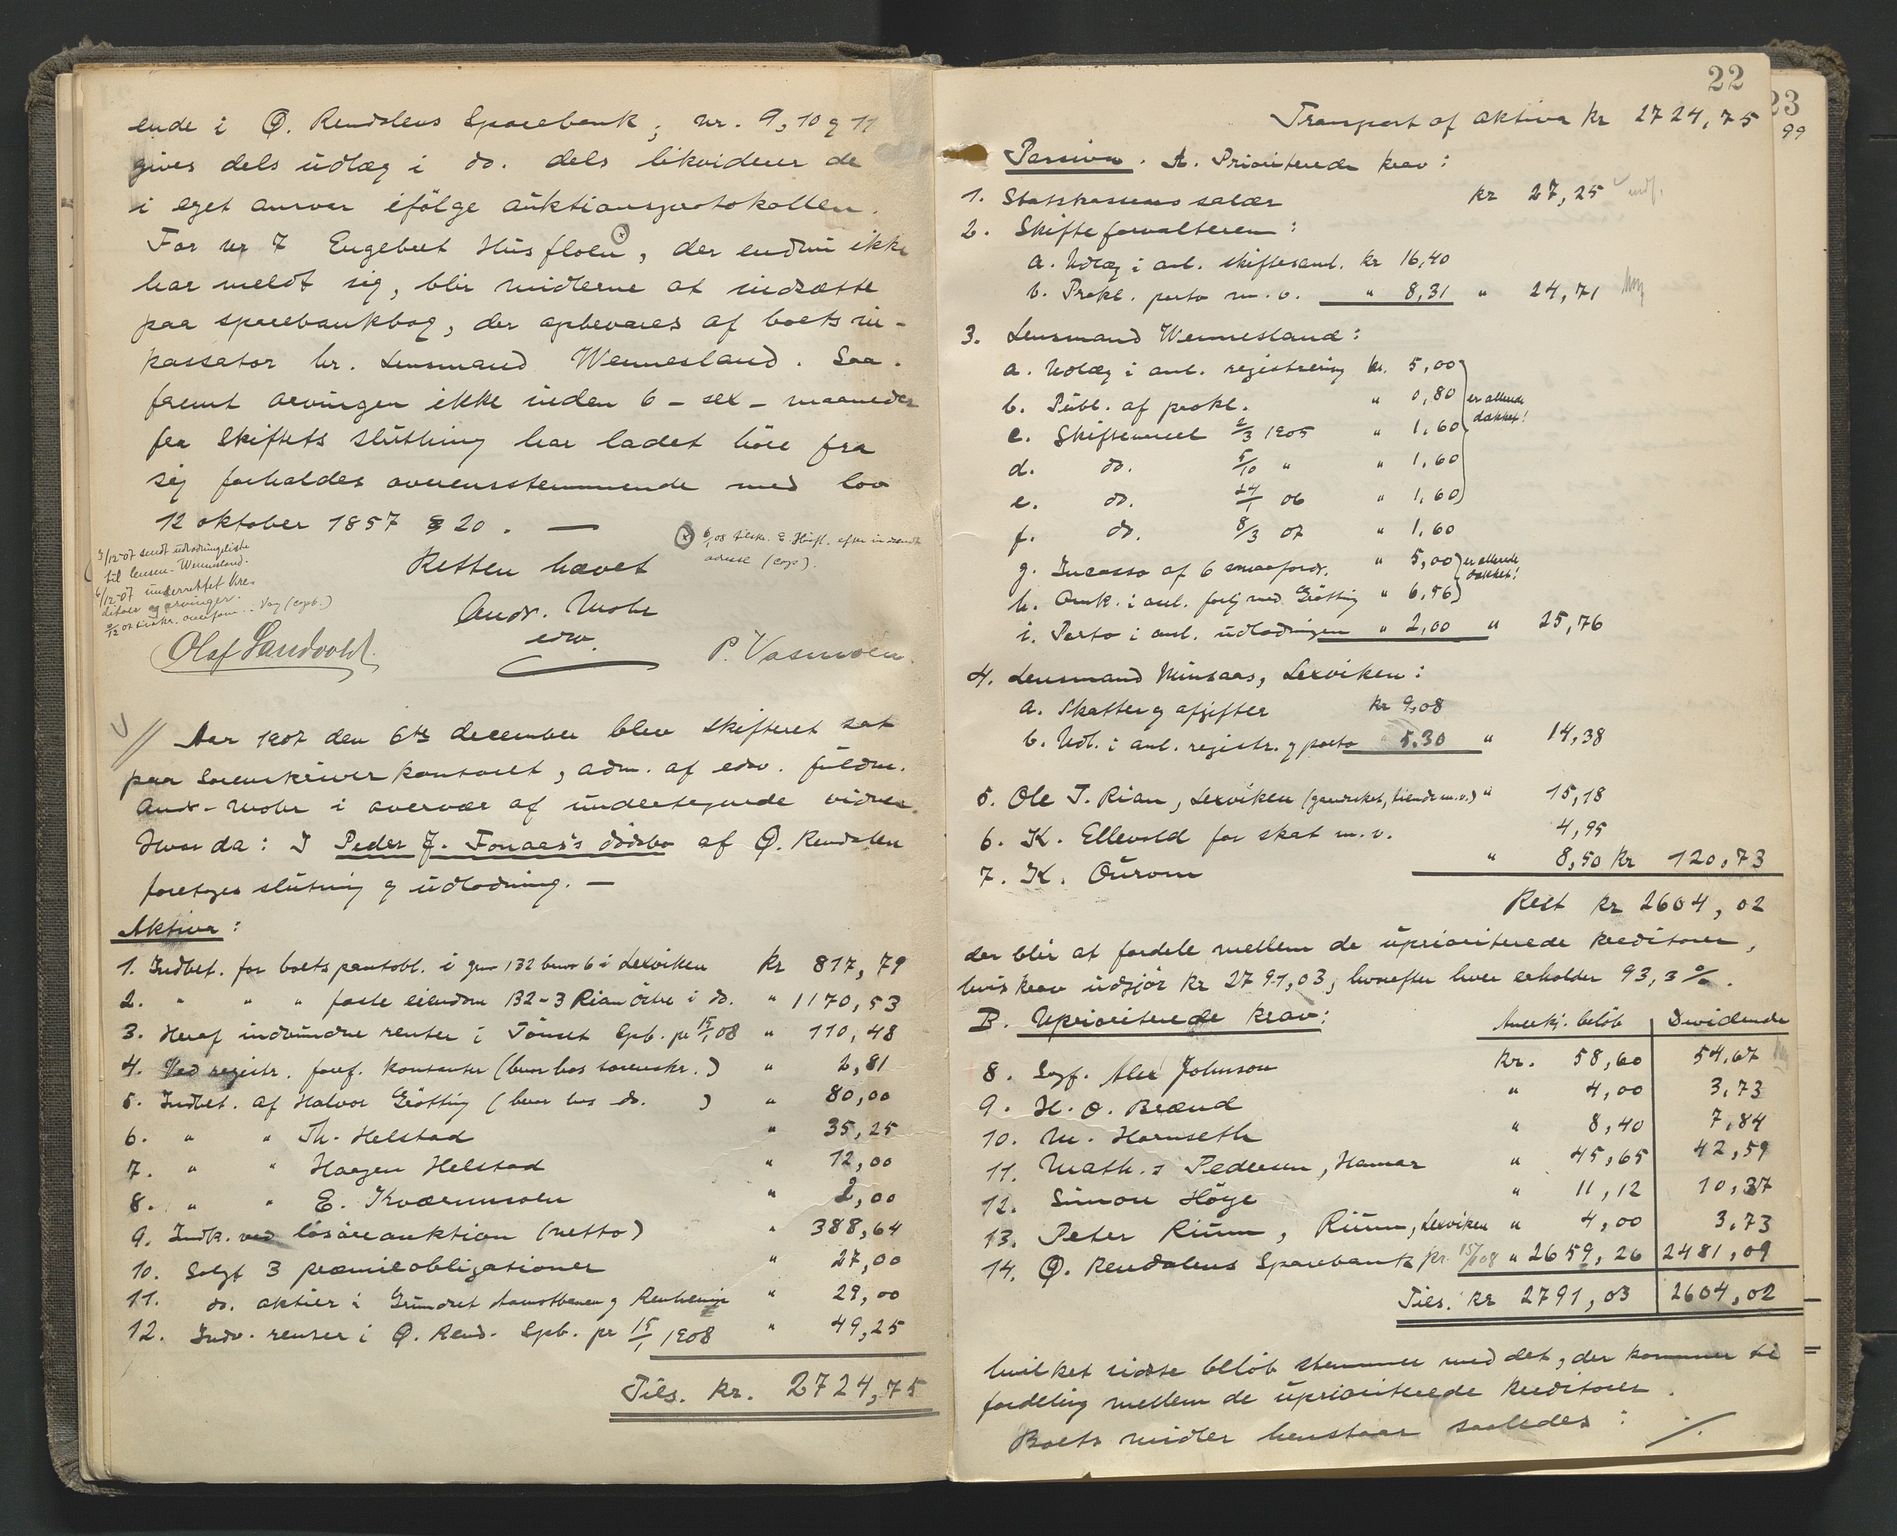 ende i Ø. Rendalens Sparebank; nr. 9, 10 og 11
gives dels udlæg i do. dels likviderer de
i eget ansvar ifølge auktionsprotokollen.
For nr 7 Engebret Husfloen, der endnu ikke
har meldt sig, blir midlerne at indsætte
paa sparebankbog, der opbevares af boets in-
kassator hr. lensmand Wennesland. Saa-
fremt arvingen ikke inden 6 - sex - maaneder
fra skiftets slutning har ladet høre fra
sig forholdes overensstemmende med lov
12 oktober 1857 § 20. —
3/12-07 sendt udlodningsliste
til lensm. Wennesland.
6/12-07 underrettet kre-
ditorer og arvinger.
6/1 08 tilskr. E. Husfl. efter indsendt
adresse (cop).
Retten hævet
Andr. Mohr
edsv.
Olaf Sandvold.
P. Vasmoen.
Aar 1907 den 6te december blev skifteret sat
paa sorenskriverkontoret, adm. af edsv. fuldm.
Andr. Mohr i overvær af undertegnede vidner.
Hvorda: I Peder J. Fonaas's dødsbo af Ø. Rendalen
foretoges slutning og udlodning. —
Aktiva:
1. Indbet. for boets pantobl. i gnr 132 bnr 6 i Lexviken kr 817,79
2. " " " faste eiendom 132-3 Rian østre i do. " 1170,53
3. Heraf indvundne renter i Tönset Spb. pr 15/1 08 " 110,48
4. Ved registr. foref. kontanter (beror hos sorenskr.) " 2,81
5. Indbet. af Halvor Grötting (beror hos do. ) " 80,00
6. " " Th. Helstad " 35,25
7. " " Haagen Helstad " 12,00
8. " " E. Kværnmoen " 2,00
9. Indk. ved løsøreauktion (netto) " 388,64
10. Solgt 3 præmieobligationer " 27,00
11. do. aktier i Grundset Aamotbanen og Renhenjø " 29,00
12. Indv. renter i Ø. Rend. Spb. pr 15/1 1908 " 49,25
Tils. kr. 2724,75
22
23
99
Transport af aktiva kr 2724,75
Passiva. A. Prioriterede krav:
1. Statskassens salær kr 27,25
2. Skifteforvalteren:
a. Udlæg i anl. skiftesaml. kr 16,40
b. Prokl. porto m. v. " 8,31 " 24,71
3. Lensmand Wennesland:
a. Udlæg i anl. registrering kr. 5,00
b. Publ. af prokl. " 0,80
er allerede
dækket!
c. Skiftevarsel 2/3 1905 " 1,60
d. do. 5/10 " " 1,60
e. do. 24/1 06 " 1,60
f. do. 8/3 07 " 1,60
g. Incasso af 6 smaafordr. " 5,00
er allerede
dækket!
h. Omk. i anl. forlig med Grötting " 6,56
i. Porto i anl. udlodningen " 2,00 " 25,76
4. Lensmand Minsaas, Lexviken:
a. Skatter og afgifter kr 9,08
b. Udl. i anl. registr. og porto 5.30 " 14,38
5. Ole T. Rian, Lexviken (gaardsket, tiende m.v.) " 15,18
6. K. Ellevold for skat m. v. 4,95
7. K. Öurom " 8,50 kr 120,73
Rest kr 2604,02
der blir at fordele mellem de upriioriterede kreditorer,
hvis krav udgjör kr 2791,03, hvorefter hver erholder 93,3 %.
B. Uprioriterede krav: Anerkj. beløb Dividende
8. Sagf. Alex Johnson kr. 58,60 54,67
9. H. O. Brænd " 4,00 3,73
10. M. Harnseth " 8,40 7,84
11. Math.s Pedersen, Hamar " 45,65 42,59
12. Simon Höye " 11,12 10,37
13. Peter Rium, Rium, Lexviken " 4,00 3,73
14. Ø. Rendalens Sparebank pr. 15/1 08 " 2659,26 2481,09
Tils. kr 2791,03 2604,02
hvilket sidste beløb stemmer med det, der kommer til
fordeling mellem de uprioriterede kreditorer.
Boets midler henstaar saaledes: ./.